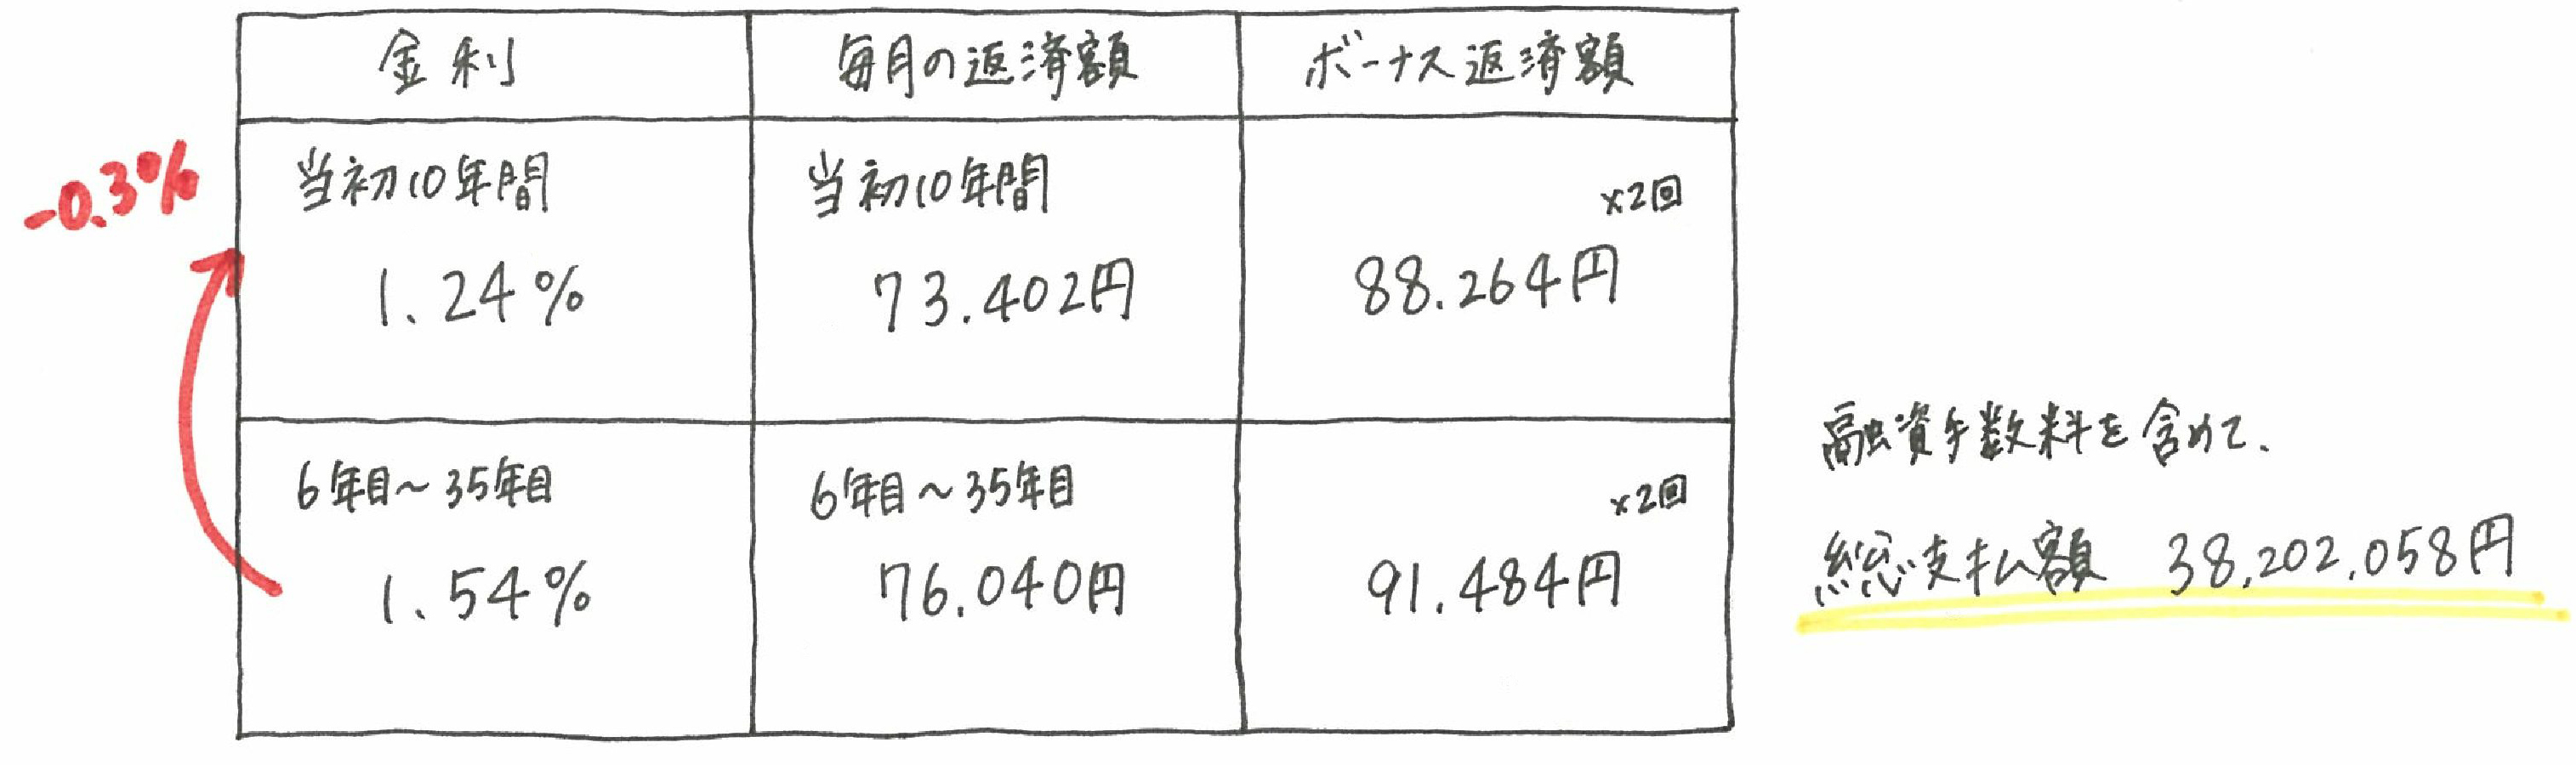 金利
毎月の返済額
ボーナス返済額
-0.3%
当初10年間
1.24%
当初10年間
73.402円
×2回
88.264円
6年目~35年目
1.54%
6年目~35年目
76.040円
×2回
91.484円
融資手数料を含めて、
総支払額 38,202,058円